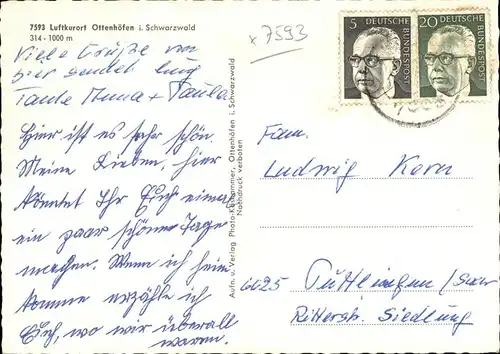 7593 Luftkurort Ottenhöfen i. Schwarzwald
314 - 1000 m
x 7593
Viele Grüße von
hier sendet Euch
Tante Anna + Paula
Hier ist es sehr schön.
Meine Lieben, hier
könntet Ihr Euch einmal
ein paar schöne Tage
machen. Wenn ich heim
komme erzähle ich
Euch, wo wir überall
waren.
Aufn. u. Verlag Photo-Kasiammer, Ottenhöfen i. Schwarzwald
Nachdruck verboten
5
DEUTSCHE BUNDESPOST
20
DEUTSCHE BUNDESPOST
Fam.
Ludwig Kern
6625 Püttlingen/Saar
Ritterstr. Siedlung